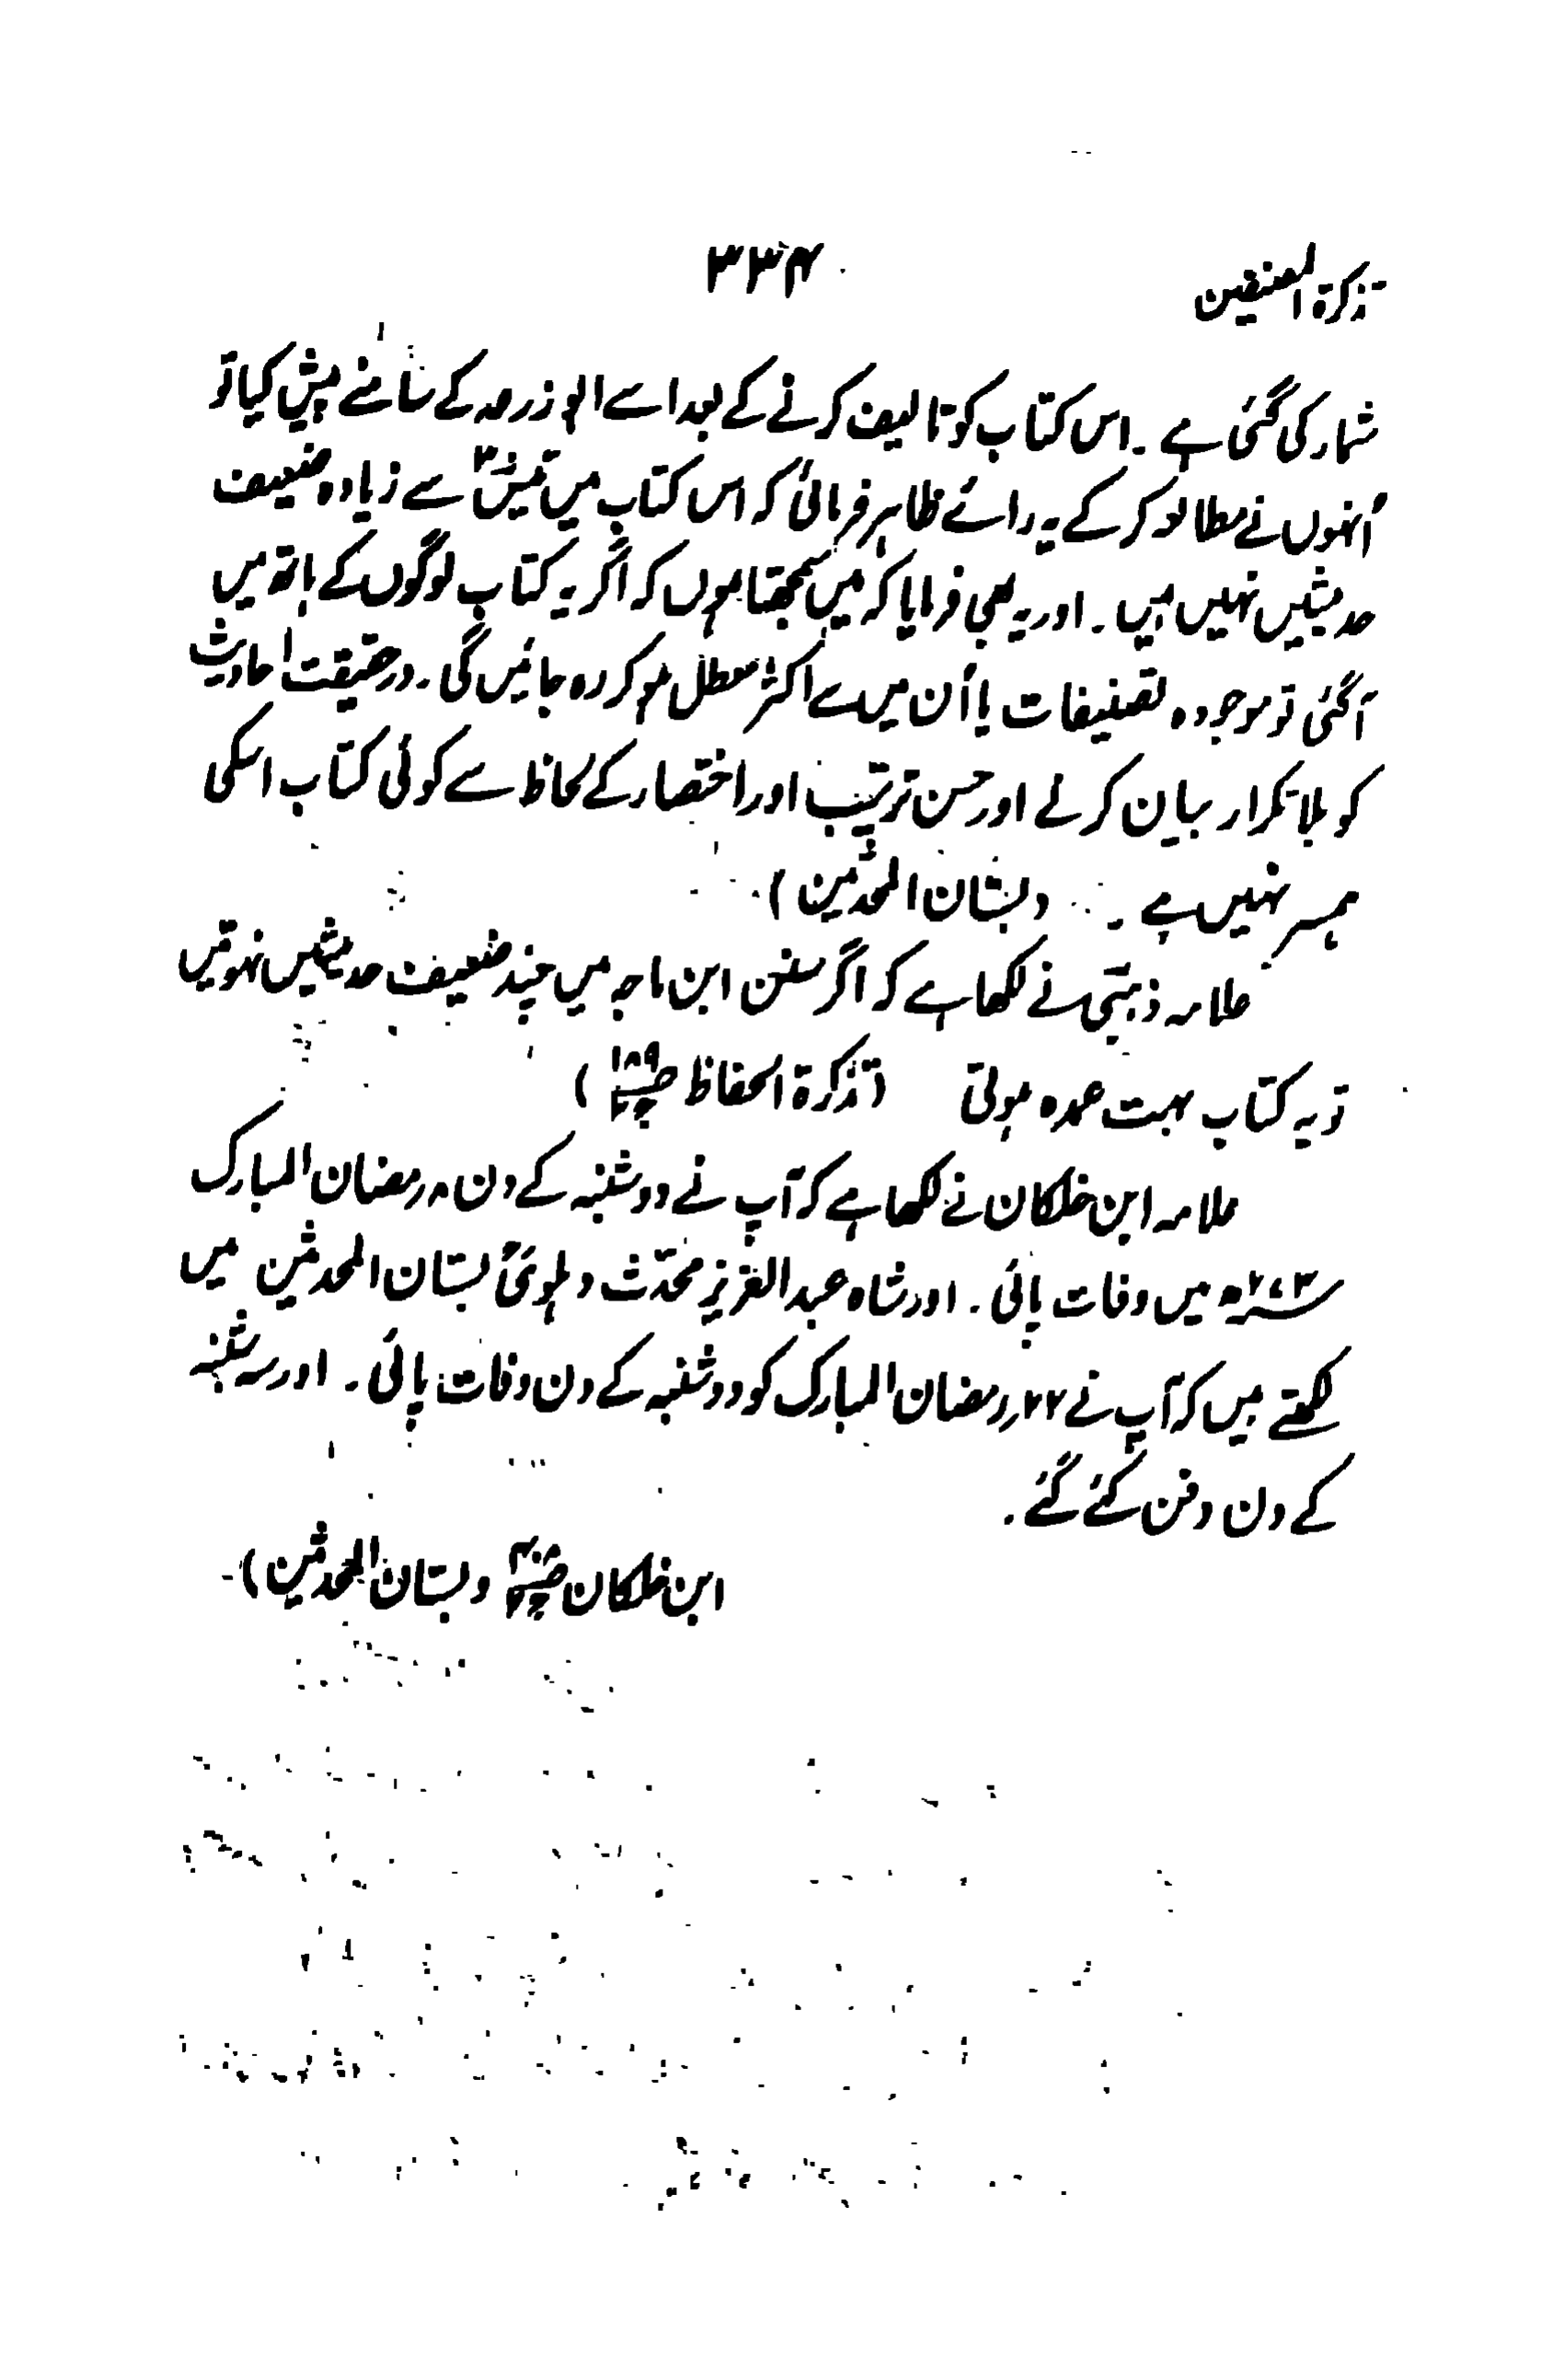 تذکرۃ المصنفین
۳۳۴
شمار کی گئی ہے۔ اس کتاب کو تالیف کرنے کے بعد اسے ابو زرعہ کے سامنے پیش کیا تو
اُنہوں نے مطالعہ کر کے یہ رائے ظاہر فرمائی کہ اس کتاب میں تیس سے زیادہ ضعیف
حدیثیں نہیں ہیں۔ اور یہ بھی فرمایا کہ میں سمجھتا ہوں کہ اگر یہ کتاب لوگوں کے ہاتھ میں
آگئی تو موجودہ تصنیفات یا اُن میں سے اکثر معطل ہو کر رہ جائیں گی۔ درحقیقت احادیث
کو بلا تکرار بیان کرلے اور حسن ترتیب اور اختصار کے لحاظ سے کوئی کتاب اسکی
ہمسر نہیں ہے۔ (بستان المحدثین)
علامہ ذہبی نے لکھا ہے کہ اگر سنن ابن ماجہ میں چند ضعیف حدیثیں نہوتیں
تو یہ کتاب بہت عمدہ ہوتی (تذکرۃ الحفاظ)
علامہ ابن خلکان نے لکھا ہے کہ آپ نے دوشنبہ کے دن رمضان المبارک
۲۷۳ھ میں وفات پائی۔ اور شاہ عبدالعزیز محدّث دہلویؒ بستان المحدثین میں
لکھتے ہیں کہ آپ نے ۲۲؍ رمضان المبارک کو دوشنبہ کے دن وفات پائی۔ اور سہ شنبہ
کے دن دفن کئے گئے۔
ابن خلکان و بستان المحدثین)۔